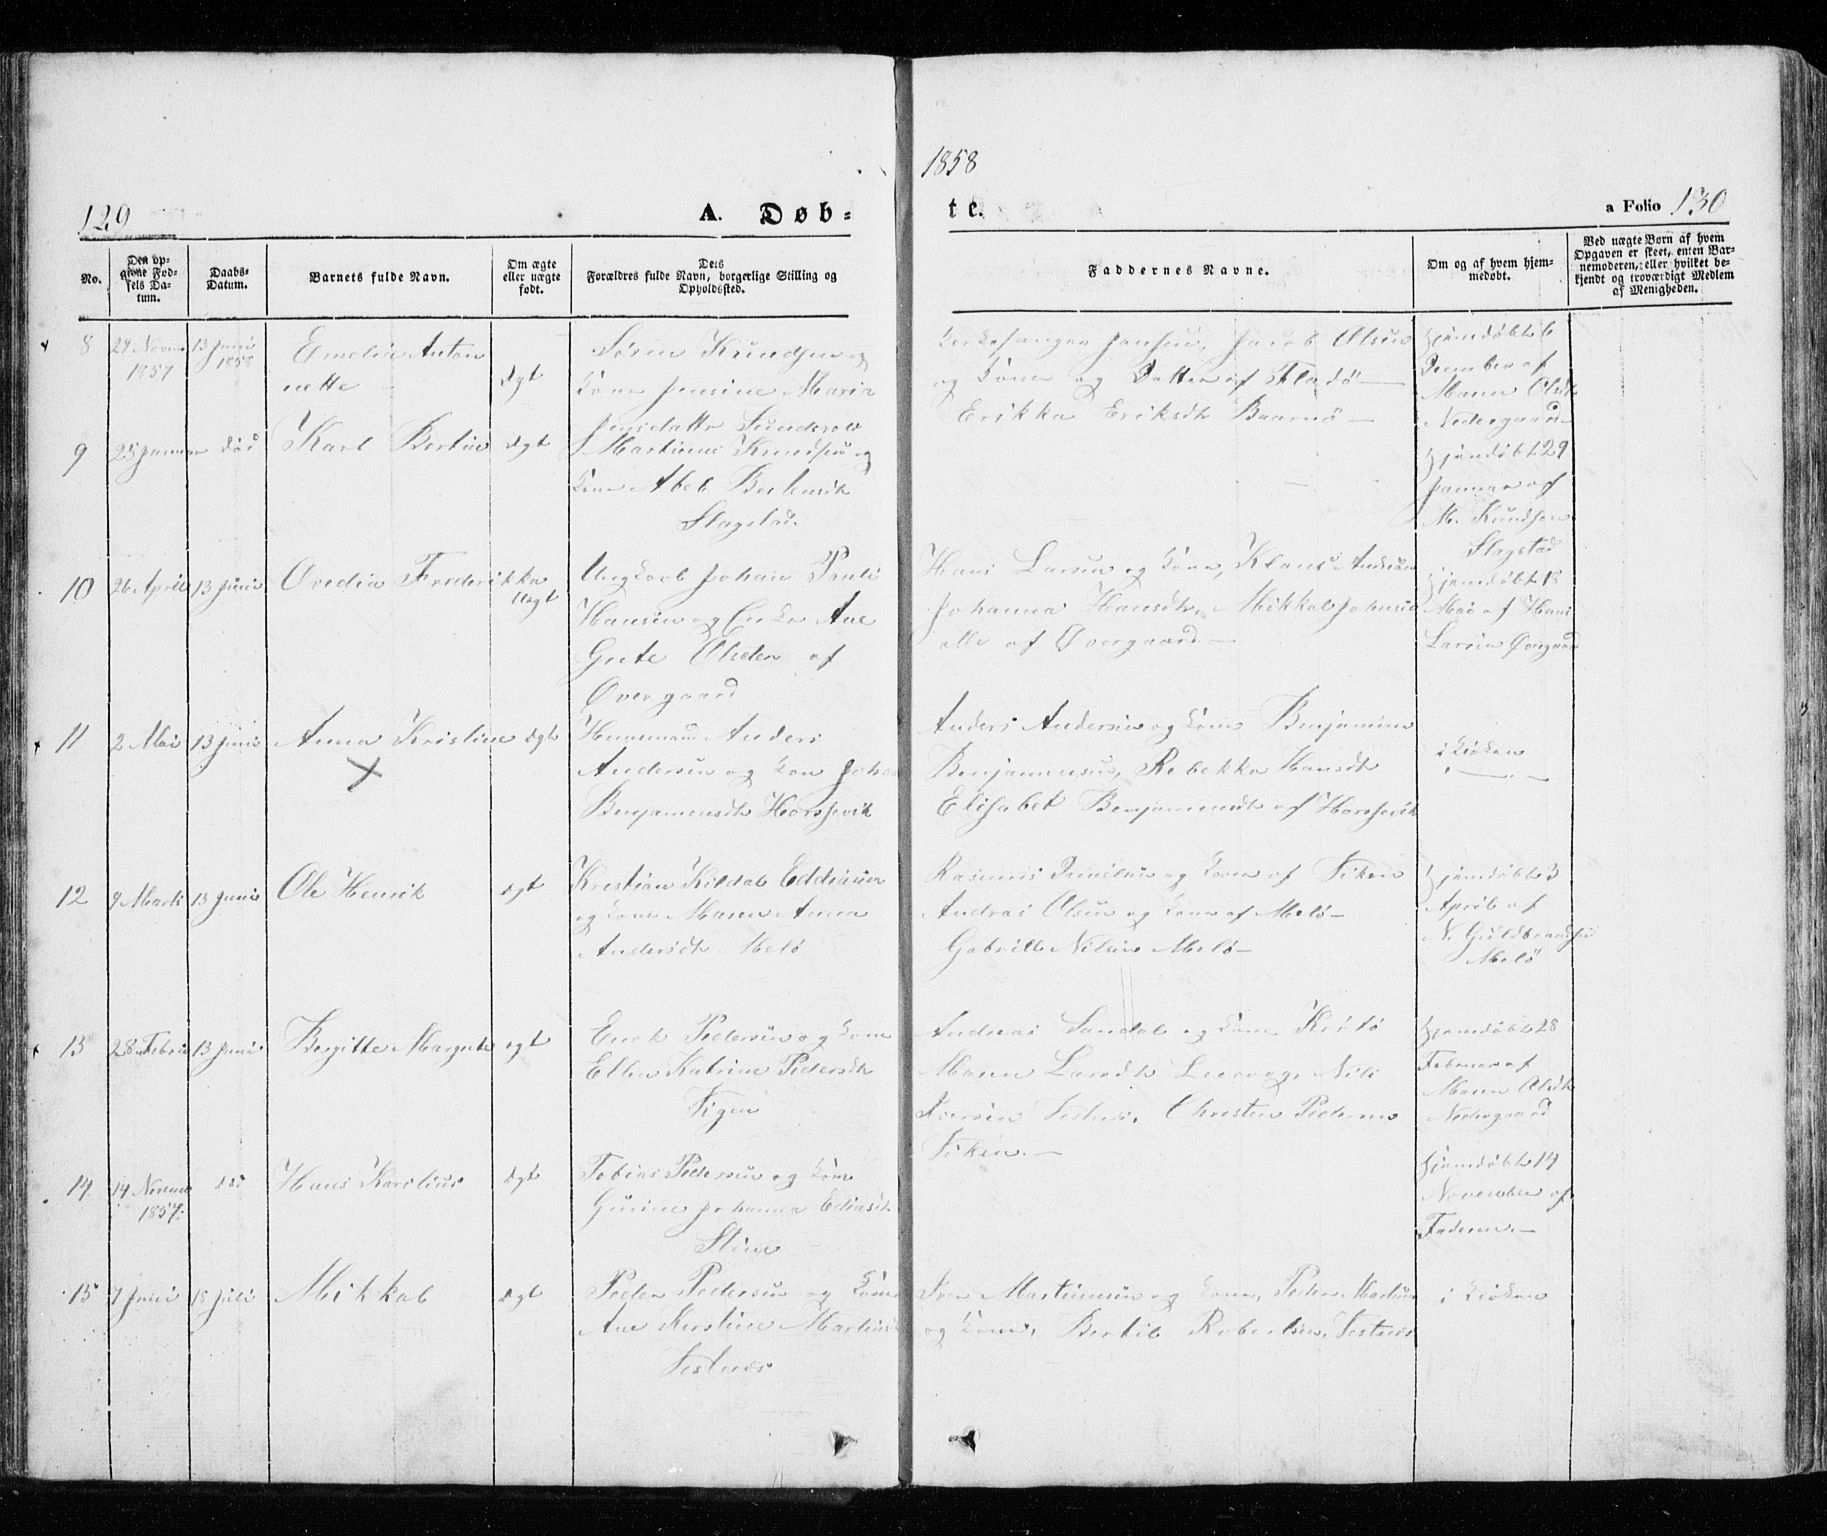 1858
129
A. Døb=
te.
a Folio 130
No.
Den op-
givne Fød-
sels Da-
tum.
Daabs-
Datum.
Barnets fulde Navn.
Om ægte
eller uægte
født.
Dets
Forældres fulde Navn, borgerlige Stilling og
Opholdssted.
Faddernes Navne.
Om og af hvem hjem-
medøbt.
Ved uægte Børn af hvem
Opgaven er skeet, enten Bar-
nemoderen, eller hvilket be-
kjendt og troværdigt Medlem
af Menigheden.
8
1857
13 Juni
1858
Emelia Anton
nette
Ægt
Søren Knudsen og
Kone Jensine Maria
Jensdattr
Kirkesanger Jensen, Jacob Olsen
og Kone og Datter af Fladø
Erikka Eriksdtr
Hjemdøbt 6
December af
Maren Olsdtr
Nedergaard
9
25 Januar
død
Karl Bertin
Ægt
Martinus Knudsen og
Kone Abel
Slagstad.
Hjemdøbt 29
Januar af
M. Knudsen
Slagstad
10
26 Aprili
13 Junii
Ovedia Frederikka
Uægt
Ungkarl Johan Paul
Hansen og Enke Ane
Grete Olsdtr af
Overgaard
Hans Larsen og Kone, Klaus Andreas
Johanna Hansdtr, Mikkal Johnsen
alle af Øvergaard
Hjemdøbt
Mai af Hans
Larsen Øvergaard
11
2 Mai
13 Junii
Anna Kristine
Ægte
Husmand Anders
Andersen og Kone Johanna
Benjaminsdtr Horssevik
Anders Andersen og Kone Benjamin
Benjaminsen, Rebekka Hansdtr
Elisabet Benjaminsdtr af Horssevik
i Kirken
12
9 Marti
13 Junii
Ole Henrik
Ægt
Kristian Kildal Eddiasen
og Kone Maren Anna
Andersdtr Melø
Rasmus Danielsen og Kone af
Andreas Olsen og Kone af Melø
Gabriel Nilsen Melø
Hjemdøbt 3
April af
N. Guldbrandsen
Melø
13
28 Februar
13 Junii
Birgitte Margrete
ægt
Enok Pedersen og Kone
Ellen Katrine Pedersdtr
Andreas Sandal og Kone Krøtø
Maren Larsdtr Leervog, Nils
Iversen Festnes, Christen Pedersen
Hjemdøbt 28
Februar af
Maren Olsdtr
Nedergaard
14
14 Novemb
1857
død
Hans Karelius
Ægt
Tobias Pedersen og Kone
Gurine Johanna Ediasdtr
Hjemdøbt 14
November af
Faderen
15
7 Junii
18 Juli
Mikkal
Ægt
Peder Pedersen og Kone
Ane Kirstine Martinsdtr
Festnes
Iver Martinusen og Kone, Peder Martinsen
og Kone, Bertil Robertsen, Festnes
i Kirken